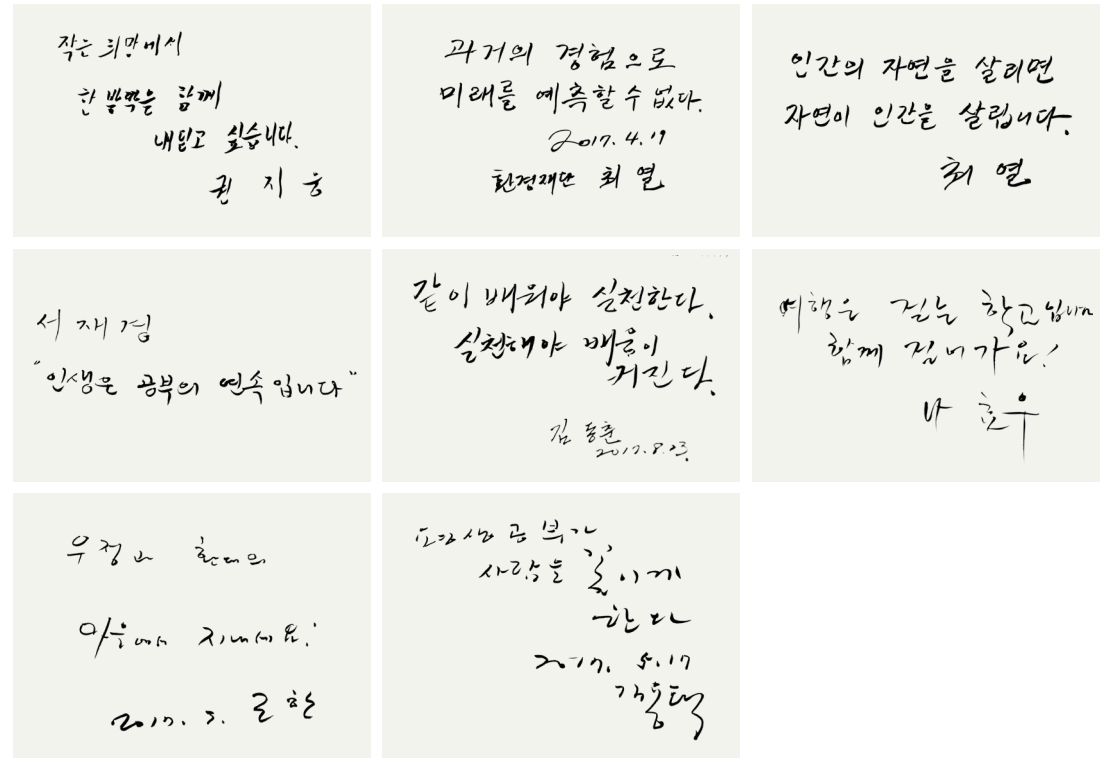 작은 희망에서
한 발막을 함께
내딛고 싶습니다.
권 지 웅
과거의 경험으로
미래를 예측할 수 없다.
2017. 4. 19
환경재단 최 열
인간의 자연을 살리면
자연이 인간을 살립니다.
최 열
서 재 경
"인생은 공부의 연속입니다"
같이 배워야 실천한다.
실천해야 배움이
커진다.
김 동춘
2017. 8. 23.
여행은 길는 학교입니다
함께 걸어가요!
우정과 환대의
마을에서 지내세요!
2017. 5.
평생공부가
사람을 길이게
한다
2017. 5. 17